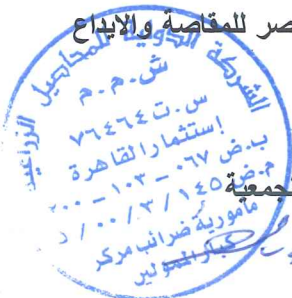 صر للمقاصة والايداع
الشركة الدولية للمحاصيل الزراعية
ش.م.م
س.ت ٧٦٤٦٤
إستثمار القاهرة
ب.ض ٠٦٧ - ١٠٣ - ٢٠٠
م.ض ١٤٥ / ٣ / ٠٠ / ٠٠
جمعية
مأمورية ضرائب مركز
كبار الممولين